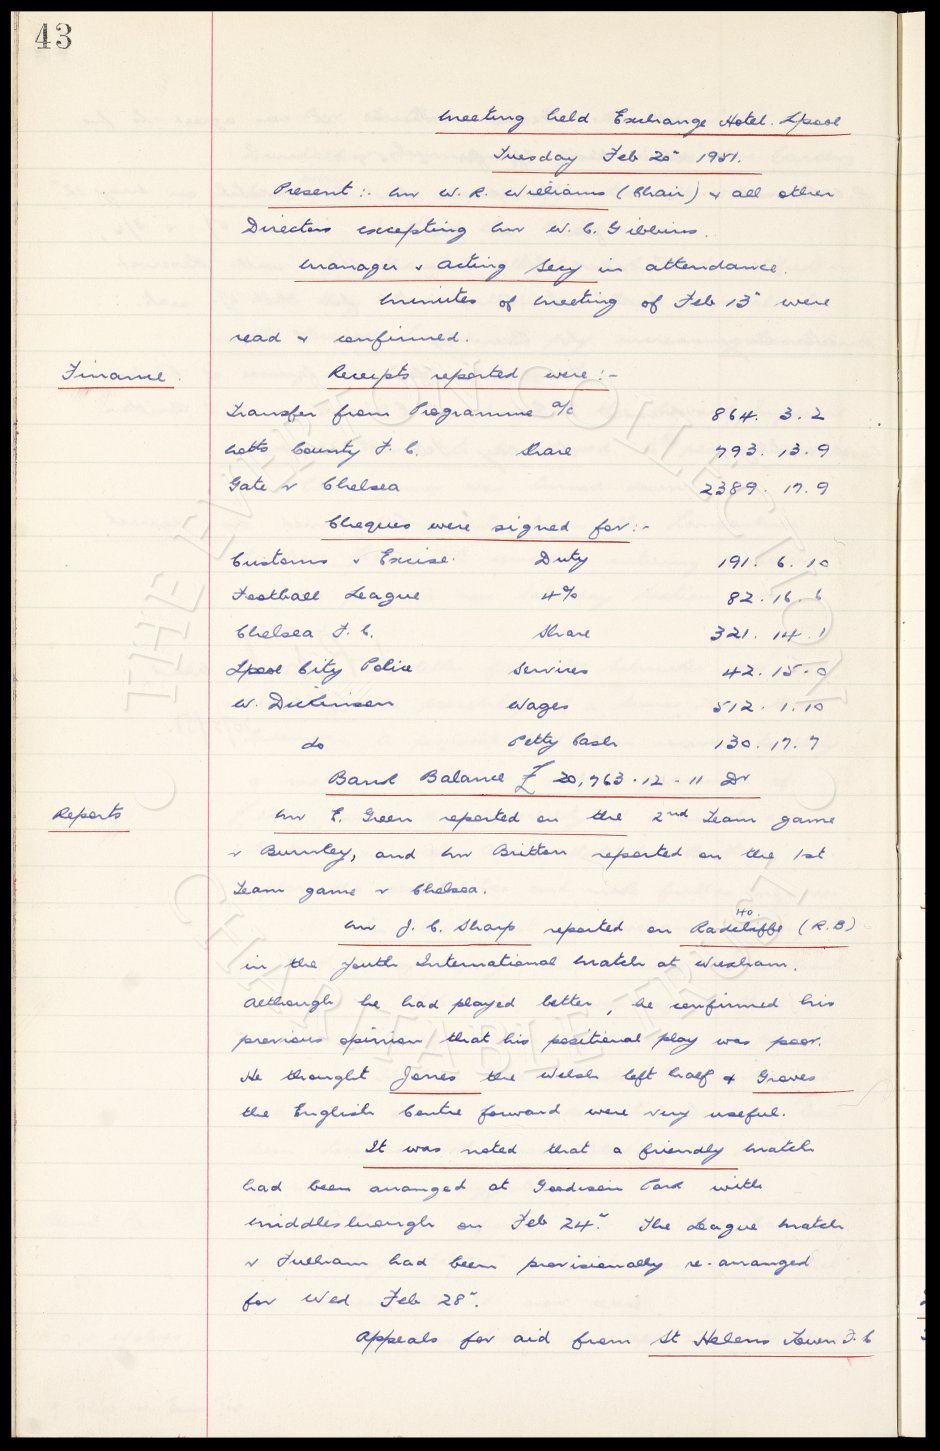 43
Meeting held Exchange Hotel. Lpool
Tuesday Feb 20" 1951.
Present:- Mr W. R. Williams (Chair) & all other
Directors excepting Mr W. C. Gibbins.
Manager & Acting Secy in attendance.
Minutes of Meeting of Feb 13" were
read & confirmed.
Finance. Receipts reported were:-
Transfer from Programme a/c 864. 3. 2
Notts County F. C. Share 793. 13. 9
Gate v Chelsea 2389. 17. 9
Cheques were signed for:-
Customs & Excise. Duty 191. 6. 10
Football League 4% 82. 16. 6
Chelsea F. C. Share 321. 14. 1
Lpool City Police Services 42. 15. 0
W. Dickinson Wages 512. 1. 10
do Petty Cash 130. 17. 7
Bank Balance £ 20,763. 12 - 11 Dr
Reports Mr E. Green reported on the 2nd Team game
v Burnley, and Mr Britton reported on the 1st
Team game v Chelsea.
Mr J. C. Sharp reported on Radcliffe (R.B)
in the Youth International Match at Wrexham.
Although he had played better, he confirmed his
previous opinion that his positional play was poor.
He thought Jones the Welsh left half & Groves
the English Centre forward were very useful.
It was noted that a friendly match
had been arranged at Goodison Park with
Middlesbrough on Feb 24". The League Match
v Fulham had been provisionally re-arranged
for Wed Feb 28".
Appeals for aid from St Helens Town F. C
THE EVERTON COLLECTION
CHARITABLE TRUST